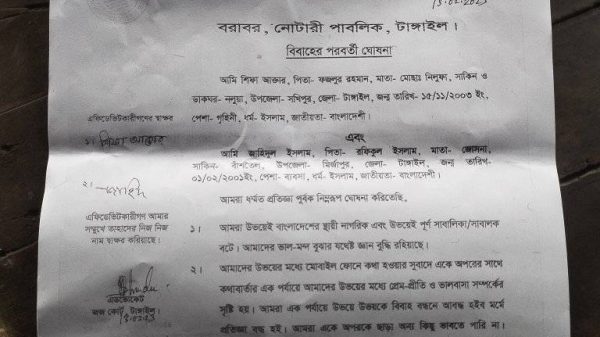 বরাবর, নোটারী পাবলিক, টাঙ্গাইল।
বিবাহের পরবর্তী ঘোষনা
আমি শিফা আক্তার, পিতা- ফজলুর রহমান, মাতা- মোছাঃ নিলুফা, সাকিন ও
ডাকঘর- নলুয়া, উপজেলা- সখিপুর, জেলা- টাঙ্গাইল, জন্ম তারিখ- ১৫/১১/২০০৩ ইং,
পেশা- গৃহিনী, ধর্ম- ইসলাম, জাতীয়তা- বাংলাদেশী।
এফিডেভিটকারীগণের স্বাক্ষর
১। শিফা আক্তার
এবং
আমি জাহিদুল ইসলাম, পিতা- রফিকুল ইসলাম, মাতা- জোসনা,
সাকিন- বাঁশতৈল, উপজেলা- মির্জাপুর, জেলা- টাঙ্গাইল, জন্ম তারিখ-
০১/০২/২০০১ইং, পেশা- ব্যবসা, ধর্ম- ইসলাম, জাতীয়তা- বাংলাদেশী।
২।
আমরা ধর্মত প্রতিজ্ঞা পূর্বক নিম্নরূপ ঘোষনা করিতেছি,
এফিডেভিটকারীগণ আমার
সম্মুখে তাহাদের নিজ নিজ
নাম স্বাক্ষর করিয়াছে।
১। আমরা উভয়েই বাংলাদেশের স্থায়ী নাগরিক এবং উভয়েই পূর্ণ সাবালিকা/সাবালক
বটে। আমাদের ভাল-মন্দ বুঝার যথেষ্ট জ্ঞান বুদ্ধি রহিয়াছে।
২। আমাদের উভয়ের মধ্যে মোবাইল ফোনে কথা হওয়ার সুবাদে একে অপরের সাথে
কথাবার্তার এক পর্যায়ে আমাদের উভয়ের মধ্যে প্রেম-প্রীতি ও ভালবাসা সম্পর্কের
সৃষ্টি হয়। আমরা এক পর্যায়ে উভয়ে উভয়কে বিবাহ বন্ধনে আবদ্ধ হইব মর্মে
প্রতিজ্ঞা বদ্ধ হই। আমরা একে অপরকে ছাড়া অন্য কিছু ভাবতে পারি না।
এডভোকেট
জজ কোর্ট, টাঙ্গাইল।